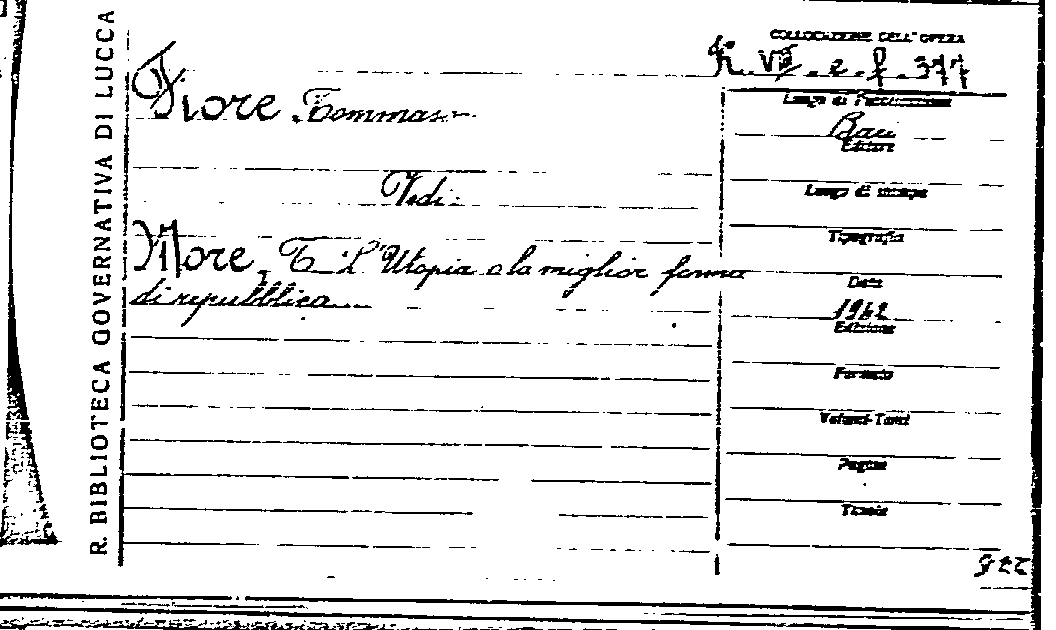 R. BIBLIOTECA GOVERNATIVA DI LUCCA
COLLOCAZIONE DELL'OPERA
VIII. e. f. 377
Fiore Tommaso
Vedi:
More, T. L'Utopia o la miglior forma
di repubblica
Luogo di Pubblicazione
Bari
Editore
Luogo di stampa
Tipografia
Data
1962
Edizione
Formato
Volumi-Tomi
Pagine
Tavole